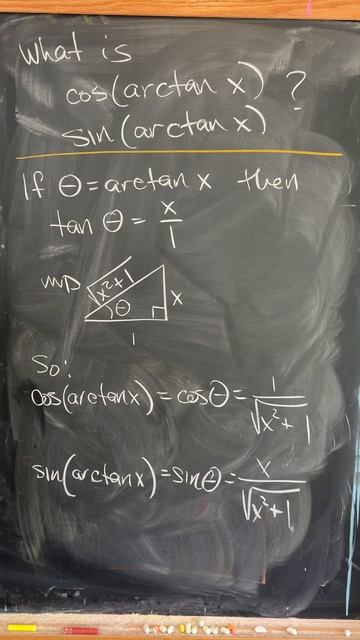 What is
cos(arctan x) ?
sin(arctan x)
If θ = arctan x then
tan θ = x/1
√x²+1
θ
x
1
So:
cos(arctan x) = cos θ = 1/√x²+1
sin(arctan x) = sin θ = x/√x²+1